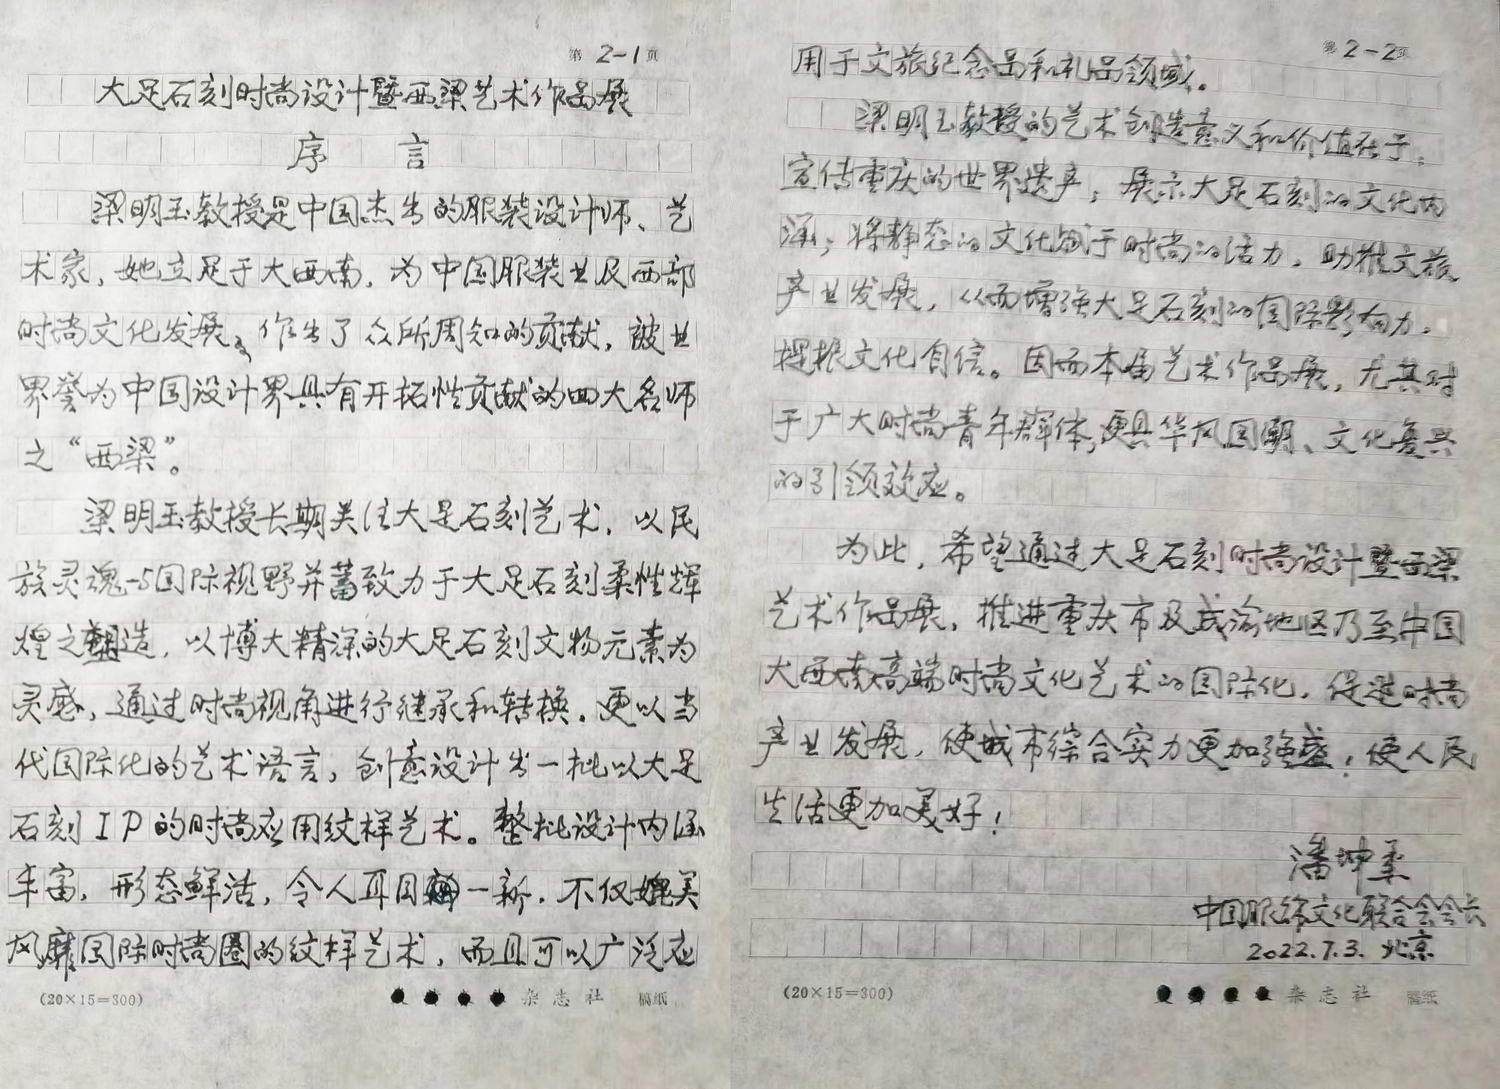 第 2-1 页
大足石刻时尚设计暨西梁艺术作品展
序 言
梁明玉教授是中国杰出的服装设计师、艺
术家，她立足于大西南，为中国服装业及西部
时尚文化发展，作出了众所周知的贡献，被业
界誉为中国设计界具有开拓性贡献的四大名师
之“西梁”。
梁明玉教授长期关注大足石刻艺术，以民
族灵魂与国际视野并蓄致力于大足石刻柔性辉
煌之塑造，以博大精深的大足石刻文物元素为
灵感，通过时尚视角进行继承和转换。更以当
代国际化的艺术语言，创意设计出一批以大足
石刻IP的时尚应用纹样艺术。整批设计内涵
丰富，形态鲜活，令人耳目一新，不仅媲美
风靡国际时尚圈的纹样艺术，而且可以广泛应
(20×15=300)
杂志社 稿纸
第 2-2 页
用于文旅纪念品和礼品领域。
梁明玉教授的艺术创造意义和价值在于：
宣传重庆的世界遗产；展示大足石刻的文化内
涵；将静态的文化赋于时尚的活力，助推文旅
产业发展，从而增强大足石刻的国际影响力，
提振文化自信。因而本届艺术作品展，尤其对
于广大时尚青年群体，更具华风国潮、文化复兴
的引领效应。
为此，希望通过大足石刻时尚设计暨西梁
艺术作品展，推进重庆市及成渝地区乃至中国
大西南高端时尚文化艺术的国际化，促进时尚
产业发展，使城市综合实力更加强盛，使人民
生活更加美好！
潘坤柔
中国服饰文化联合会会长
2022.7.3. 北京
(20×15=300)
杂志社 稿纸